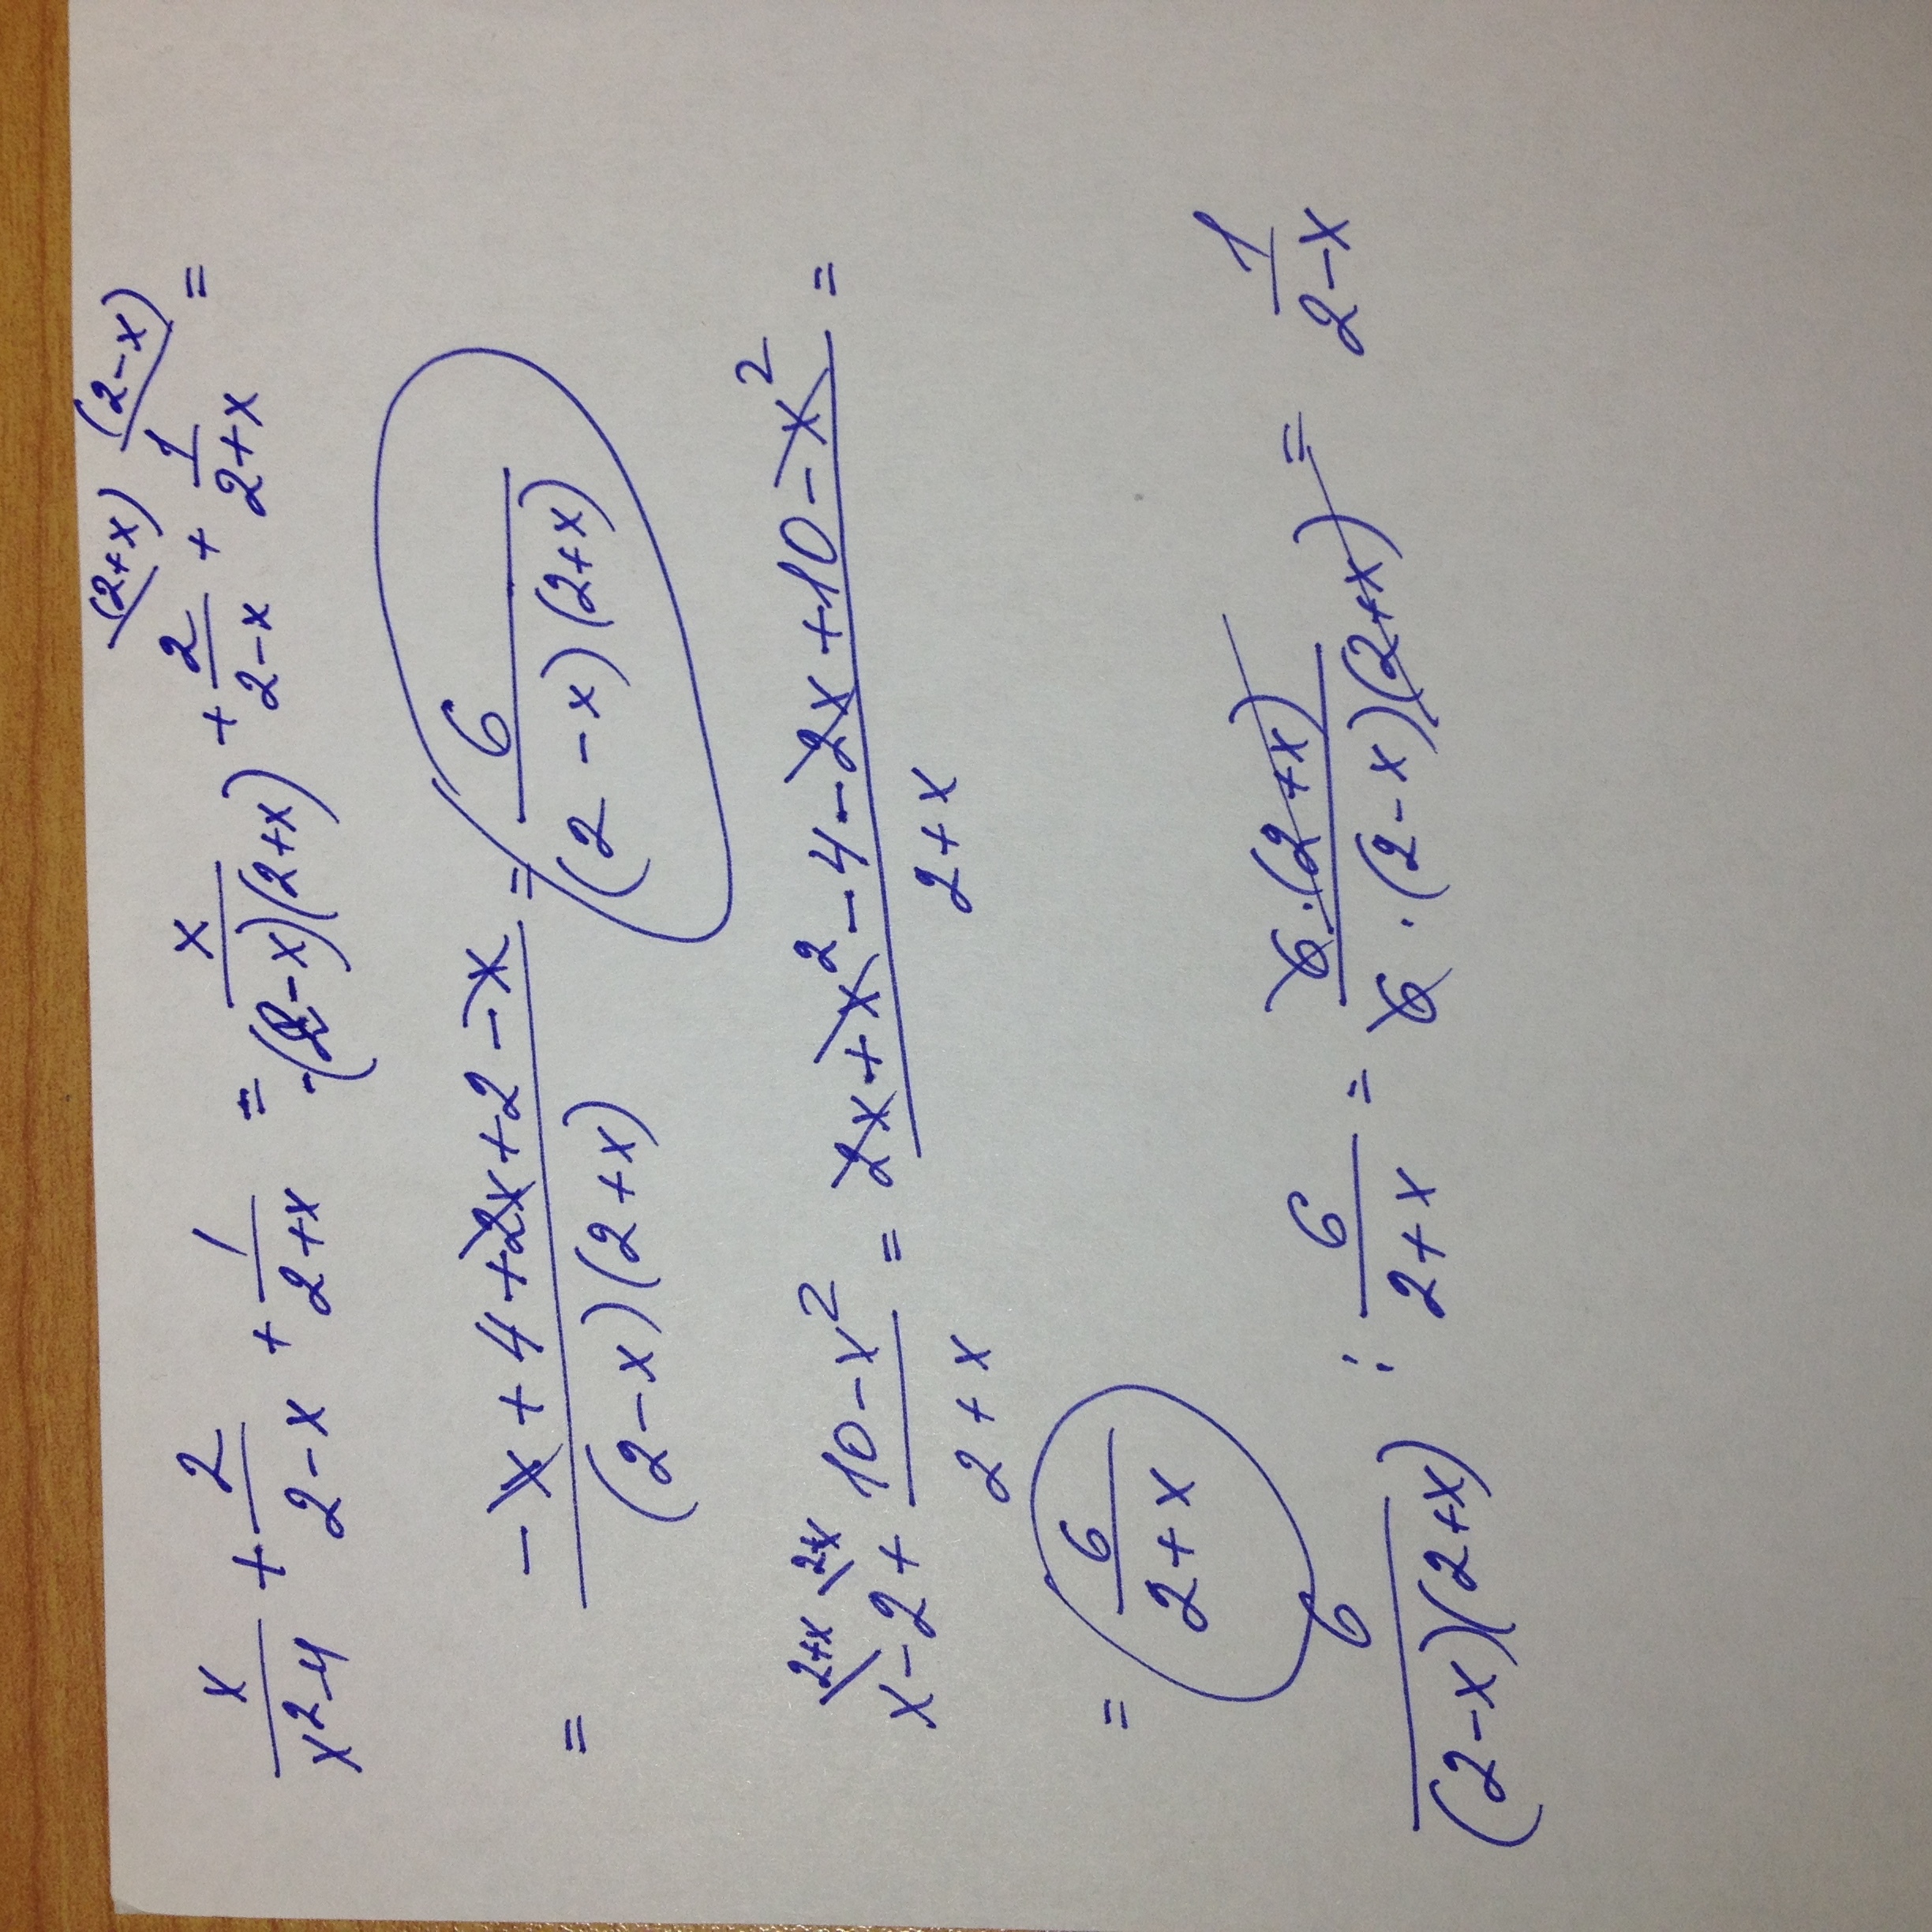 x/(x²-4) + 2/(2-x) + 1/(2+x) = x/(-(2-x)(2+x)) + 2/(2-x) (2+x) + 1/(2+x) (2-x) =
= (-x+4+2x+2-x)/((2-x)(2+x)) = 6/((2-x)(2+x))
x-2+ (10-x²)/(2+x) = (2x+x²-4-2x+10-x²)/(2+x) =
= 6/(2+x)
6/((2-x)(2+x)) : 6/(2+x) = (6·(2+x))/(6·(2-x)(2+x)) = 1/(2-x)